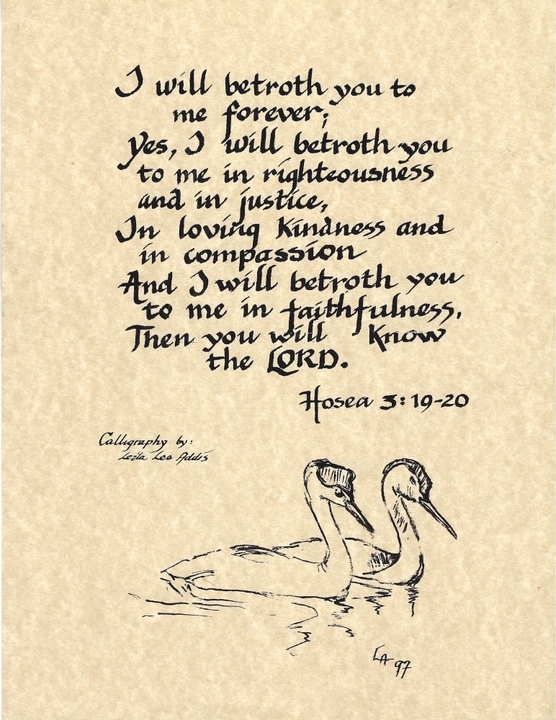 I will betroth you to
me forever;
Yes, I will betroth you
to me in righteousness
and in justice,
In loving kindness and
in compassion
And I will betroth you
to me in faithfulness,
Then you will know
the LORD.
Hosea 3:19-20
Calligraphy by:
Lee Addis
LA 97